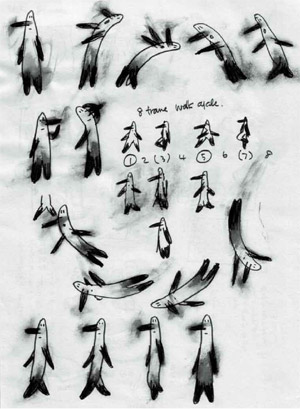 8 frame walk cycle.
① 2 (3) 4 ⑤ 6 (7) 8